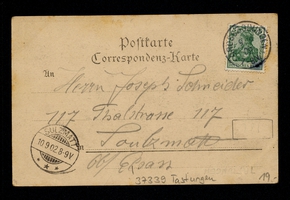 Postkarte
Correspondenz-Karte
An
Herrn Joseph Schneider
117 Thalstrasse 117
Sulzmatt
Ob/ Elsass
SULZMATT
10.9.02.8-9V
37339 Tastungen
19.-